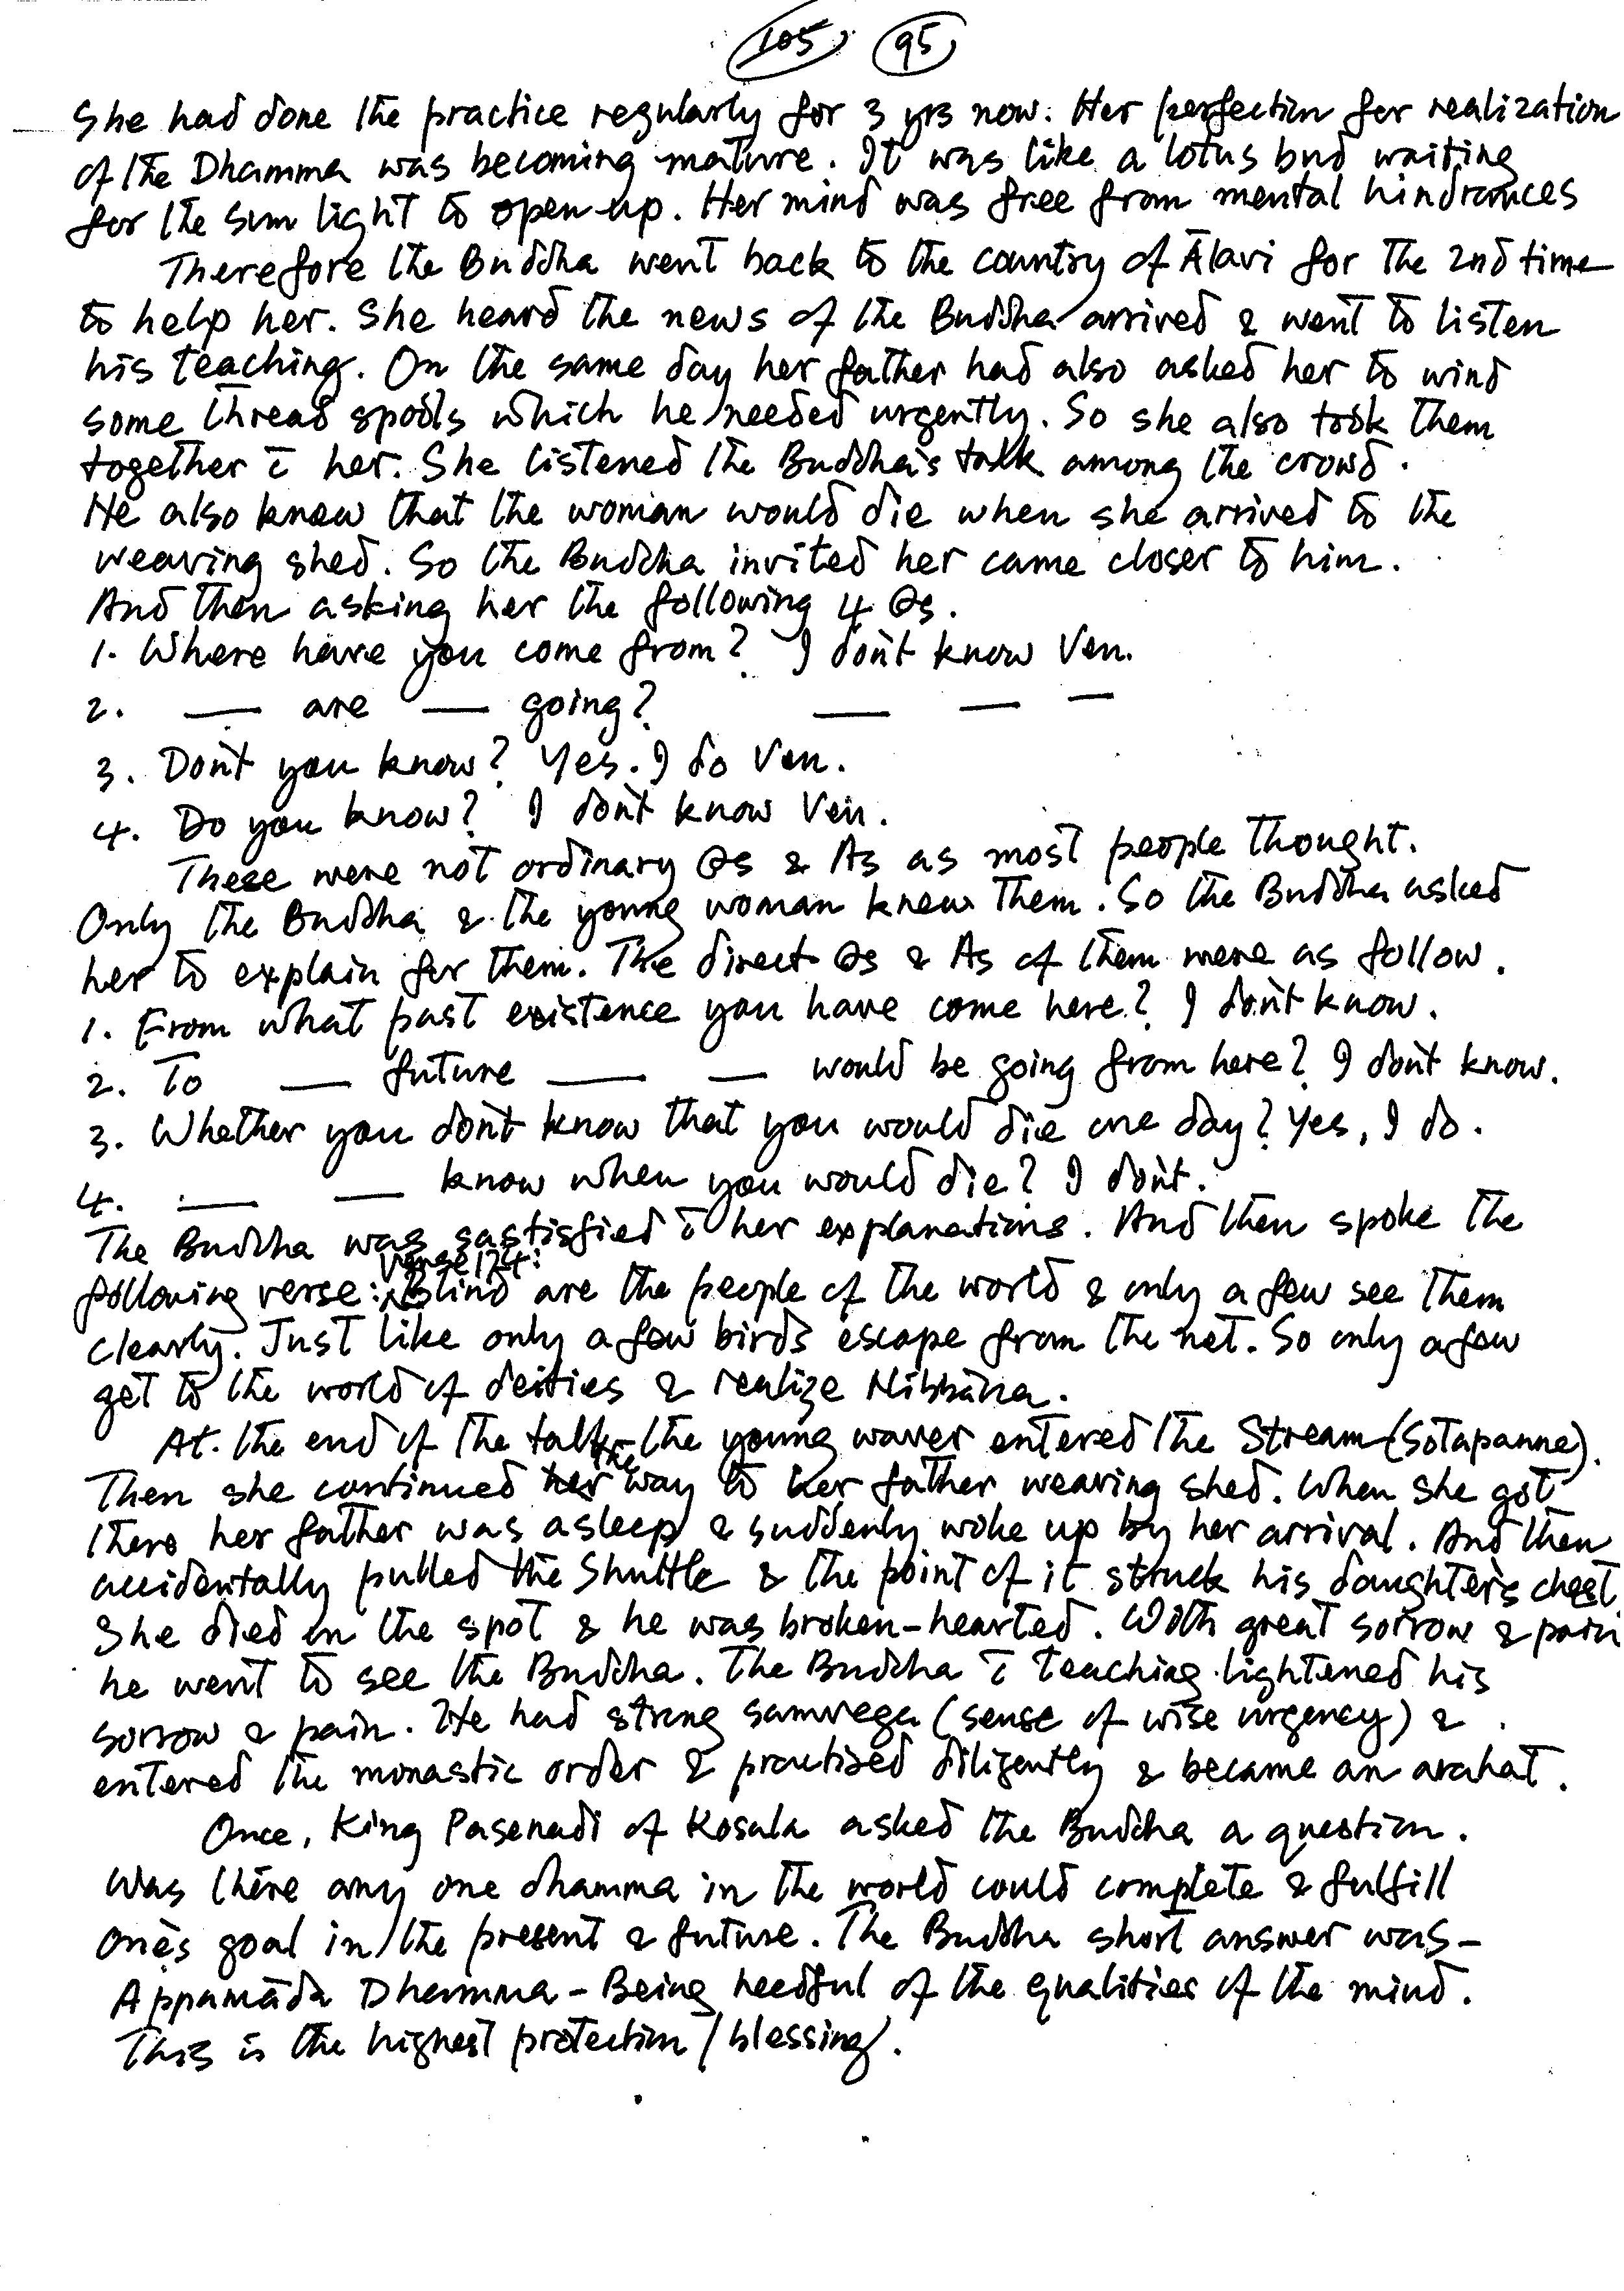 105 95
She had done the practice regularly for 3 yrs now. Her perfection for realization
of the Dhamma was becoming mature. It was like a lotus bud waiting
for the sun light to open-up. Her mind was free from mental hindrances
Therefore the Buddha went back to the country of Āḷavi for the 2nd time
to help her. She heard the news of the Buddha arrived & went to listen
his teaching. On the same day her father had also asked her to wind
some thread spools which he needed urgently. So she also took them
together c̄ her. She listened the Buddha's talk among the crowd.
He also knew that the woman would die when she arrived to the
weaving shed. So the Buddha invited her came closer to him.
And then asking her the following 4 Qs.
1. Where have you come from? I don't know Ven.
2. — are — going? — — —
3. Don't you know? Yes. I do Ven.
4. Do you know? I don't know Ven.
These were not ordinary Qs & As as most people thought.
Only the Buddha & the young woman knew them. So the Buddha asked
her to explain for them. The direct Qs & As of them were as follow.
1. From what past existence you have come here? I don't know.
2. To — future — — would be going from here? I don't know.
3. Whether you don't know that you would die one day? Yes, I do.
4. — — know when you would die? I don't.
The Buddha was sastisfied c̄ her explanations. And then spoke the
following verse: Verse 174: Blind are the people of the world & only a few see them
clearly. Just like only a few birds escape from the net. So only a few
get to the world of deities & realize Nibbāna.
At the end of the talk the young waver entered the Stream (Sotapanna).
Then she continued her the way to her father weaving shed. When she got
there her father was asleep & suddenly woke up by her arrival. And then
accidentally pulled the Shuttle & the point of it struck his daughter's chest.
She died on the spot & he was broken-hearted. With great sorrow & pain
he went to see the Buddha. The Buddha c̄ teaching lightened his
sorrow & pain. He had strong samvega (sense of wise urgency) &
entered the monastic order & practised diligently & became an arahat.
Once, King Pasenadi of Kosala asked the Buddha a question.
Was there any one dhamma in the world could complete & fulfill
one's goal in the present & future. The Buddha short answer was-
Appamāda Dhamma - Being heedful of the qualities of the mind.
This is the highest protection / blessing.